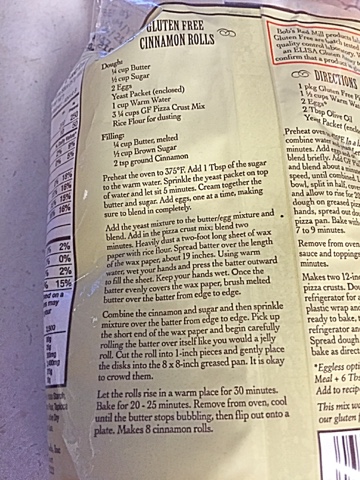 GLUTEN FREE
CINNAMON ROLLS
Dough:
¼ cup Butter
½ cup Sugar
2 Eggs
Yeast Packet (enclosed)
1 cup Warm Water
3 ¼ cups GF Pizza Crust Mix
Rice Flour for dusting
Filling:
¼ cup Butter, melted
½ cup Brown Sugar
2 tsp ground Cinnamon
Preheat the oven to 375°F. Add 1 Tbsp of the sugar
to the warm water. Sprinkle the yeast packet on top
of water and let it 5 minutes. Cream together the
butter and sugar. Add eggs, one at a time, making
sure to blend in completely.
Add the yeast mixture to the butter/egg mixture and
blend. Add in the pizza crust mix; blend two
minutes. Heavily dust a two-foot long sheet of wax
paper with rice flour. Spread batter over the length
of the wax paper, about 19 inches. Using warm
water, wet your hands and press the batter outward
to fill the sheet. Keep your hands wet. Once the
batter evenly covers the wax paper, brush melted
butter over the batter from edge to edge.
Combine the cinnamon and sugar and then sprinkle
mixture over the batter from edge to edge. Pick up
the short end of the wax paper and begin carefully
rolling the batter over itself like you would a jelly
roll. Cut the roll into 1-inch pieces and gently place
the disks into the 8 x 8-inch greased pan. It is okay
to crowd them.
Let the rolls rise in a warm place for 30 minutes.
Bake for 20 - 25 minutes. Remove from oven, cool
until the butter stops bubbling, then flip out onto a
plate. Makes 8 cinnamon rolls.
Bob's Red Mill products
Gluten Free are batch
quality control
an ELISA Gluten
confirm that a product
DIRECTIONS
1 pkg Gluten Free
1 ½ cups Warm
2 Eggs*
2 Tbsp Olive Oil
Yeast Packet
Preheat oven
combine water
minutes. Add
blend briefly. Add
and blend about a
speed, until combined.
bowl, split in half,
and allow to rise for 20
dough on greased
hands, spread out
pizza pan. Bake
7 to 9 minutes.
Remove from oven
sauce and toppings
minutes.
Makes two 12-inch
pizza crusts. Dough
refrigerator for
plastic wrap and
ready to bake,
refrigerator and
Spread dough
bake as direct
*Eggless opti
Meal + 6 Tbs
Add to recip
This mix wa
our gluten f
2%
0%
2%
15%